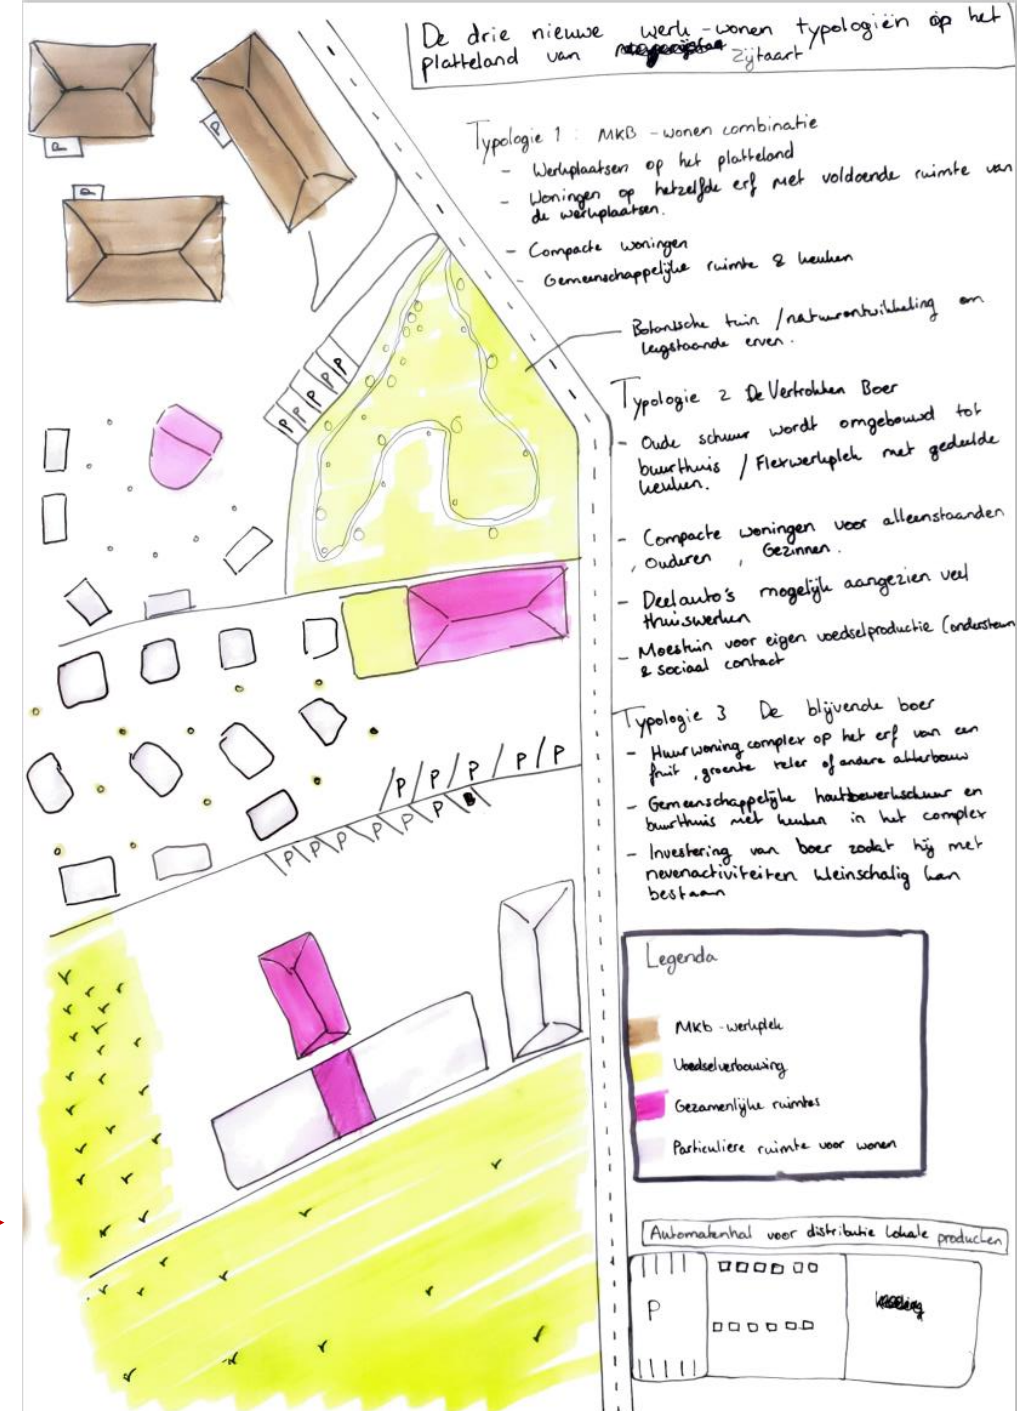 De drie nieuwe werk-wonen typologiën op het
platteland van Zijtaart
Typologie 1 : MKB - wonen combinatie
- Werkplaatsen op het platteland
- Woningen op hetzelfde erf met voldoende ruimte van
de werkplaatsen.
- Compacte woningen
- Gemeenschappelijke ruimte & keuken
Botanische tuin / natuurontwikkeling om
leegstaande erven.
Typologie 2 De Vertrokken Boer
- Oude schuur wordt omgebouwd tot
buurthuis / Flexwerkplek met gedeelde
keuken.
- Compacte woningen voor alleenstaanden
, ouderen , Gezinnen.
- Deelauto's mogelijk aangezien veel
thuiswerken
- Moestuin voor eigen voedselproductie (ondersteun
& sociaal contact
Typologie 3 De blijvende boer
- Huurwoning complex op het erf van een
fruit, groente teler of andere akkerbouw
- Gemeenschappelijke houtbewerkschuur en
buurthuis met keuken in het complex
- Investering van boer zodat hij met
nevenactiviteiten kleinschalig kan
bestaan
Legenda
Mkb-werkplek
Voedselverbouwing
Gezamenlijke ruimtes
Particuliere ruimte voor wonen
Automatenhal voor distributie lokale producten
P
P
P
P
P P P P
P P P P P
P P P P P P B
P